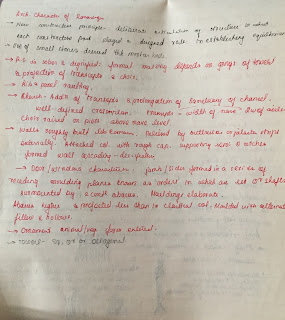 Arch. Character of Romanesque
→ New constructive principle - deliberate articulation of structure in which
each constructive part played a designed role in establishing equilibrium
→ Use of small stones around the mortar
→ A.C is sober & dignified formal massing depends on grouping of towers
& projection of transepts & choir.
→ Rib & panel vaulting.
→ Church - Addn of transepts & prolongation of sanctuary of chancel.
well-defined cruciform. Transepts - width of nave
choir raised on piers above nave level
→ Walls roughly built. Relieved by buttresses or pilaster strips
externally. Attached col. with rough cap. supporting semi O arches
formed wall arcading - decorative
→ Door/window characteristic - jambs/sides formed in a series of
receding moulding planes known as 'orders' in which are set O shafts
surmounted by a cont abacus. Mouldings elaborate.
Abacus higher & projected less than in classical col. Moulded with alternate
fillets & hollows.
→ Ornament carved/veg forms
→ Towers - sq, O or octagonal